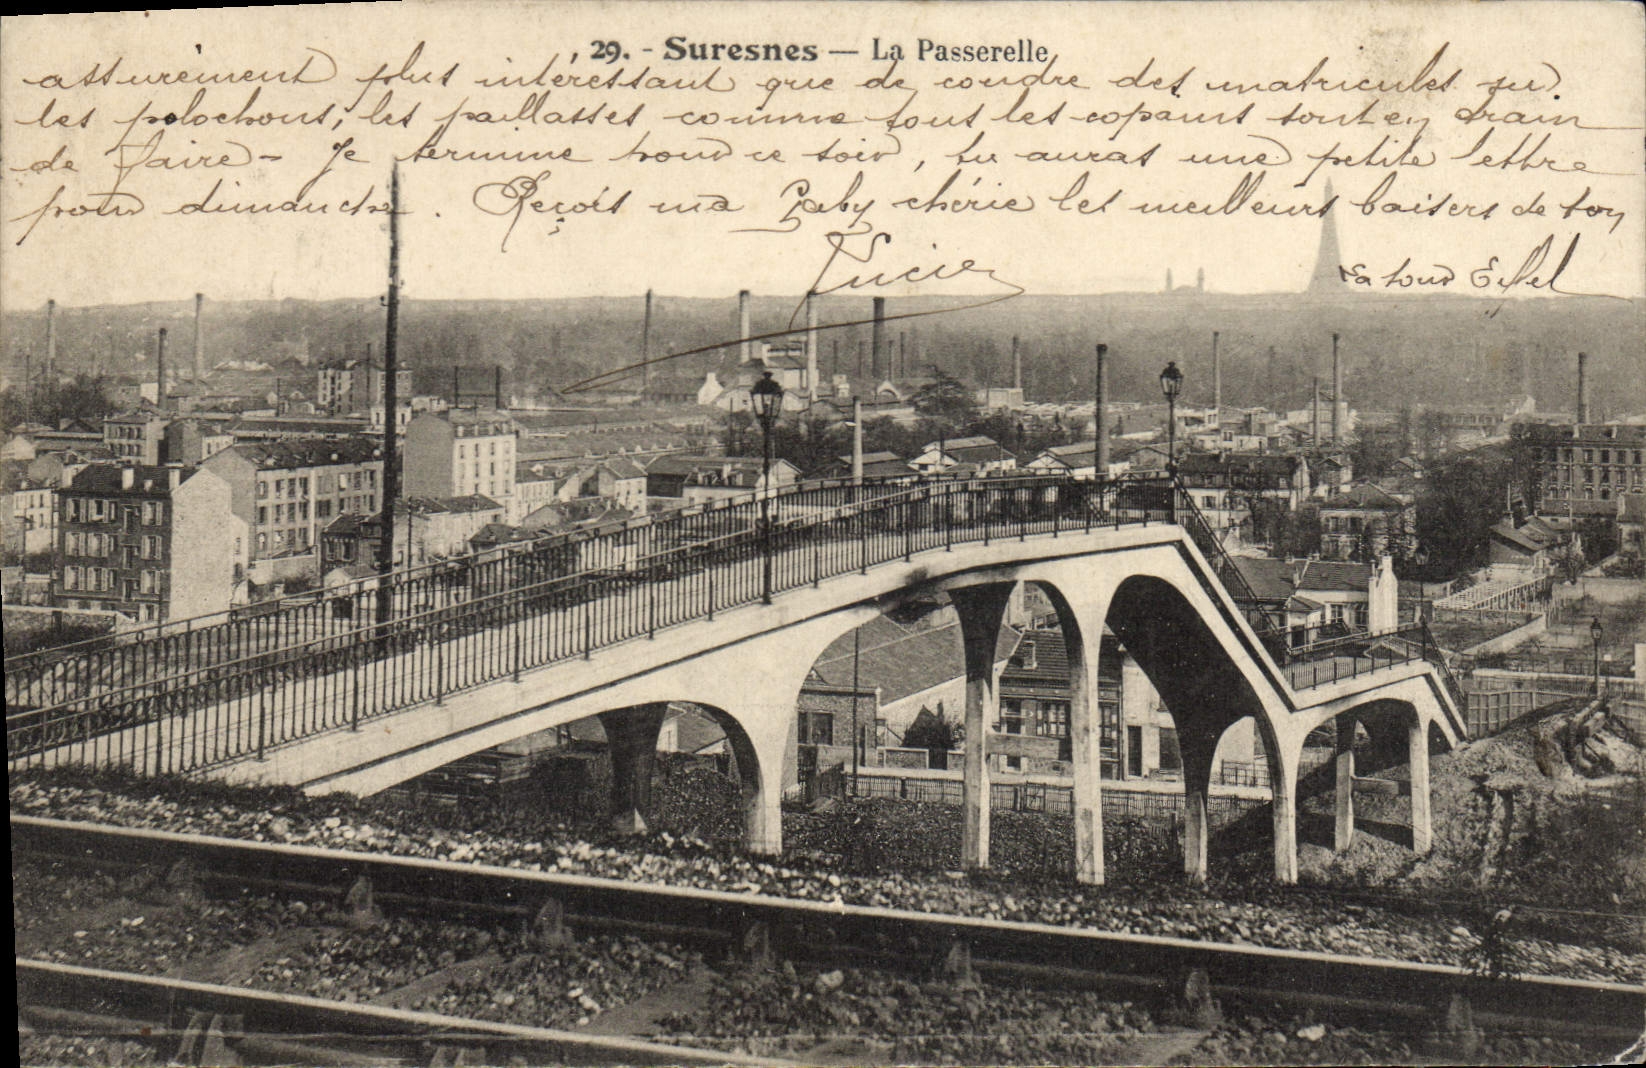 29. - Suresnes — La Passerelle
assurément plus intéressant que de coudre des matricules sur
les polochons, les paillasses comme tous les copains sont en train
de faire - Je termine pour ce soir, tu auras une petite lettre
pour dimanche. Reçois ma Gaby chérie les meilleurs baisers de ton
Lucien
La tour Eiffel